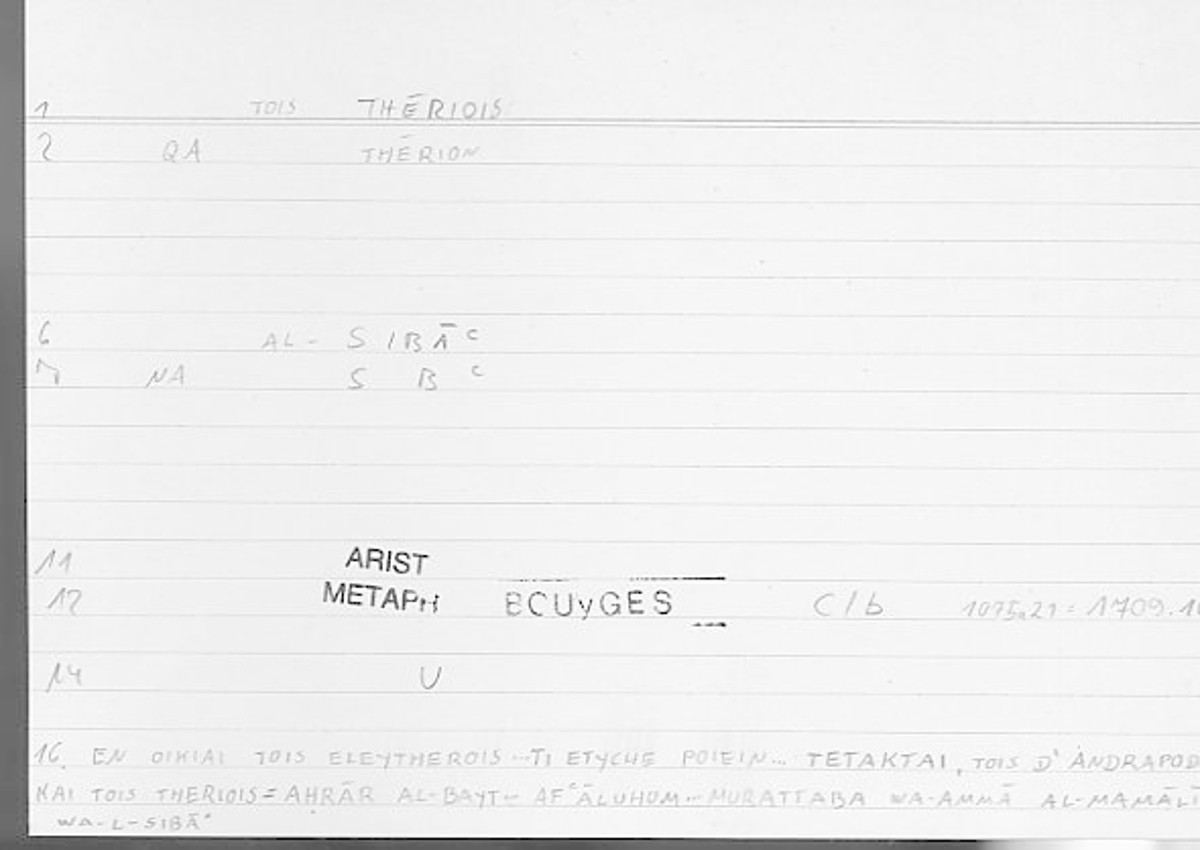 1 TOIS THĒRIOIS
2 QA THĒRION
6 AL- SIBĀᶜ
7 NA S B ᶜ
11 ARIST
12 METAPH BOUyGES C/b 1075a21 = 1709.10
14 U
16. EN OIKIAI TOIS ELEYTHEROIS ... TI ETYCHE POIEIN ... TETAKTAI, TOIS D' ANDRAPOD
KAI TOIS THERIOIS = AḤRĀR AL-BAYT ... AFᶜĀLUHUM ... MURATTABA WA-AMMĀ AL-MAMĀLĪ
WA-L-SIBĀᶜ